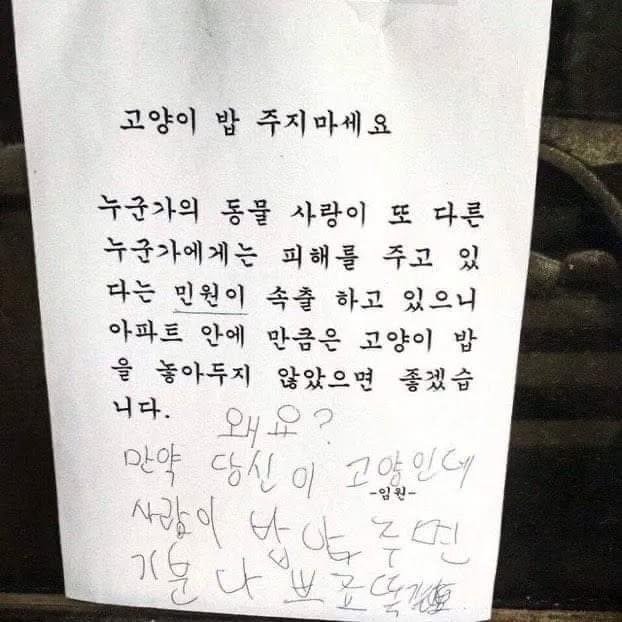 고양이 밥 주지마세요
누군가의 동물 사랑이 또 다른
누군가에게는 피해를 주고 있
다는 민원이 속출 하고 있으니
아파트 안에 만큼은 고양이 밥
을 놓아두지 않았으면 좋겠습
니다.
왜요?
만약 당신이 고양인데
-임원-
사람이 밥 주면
기분 나